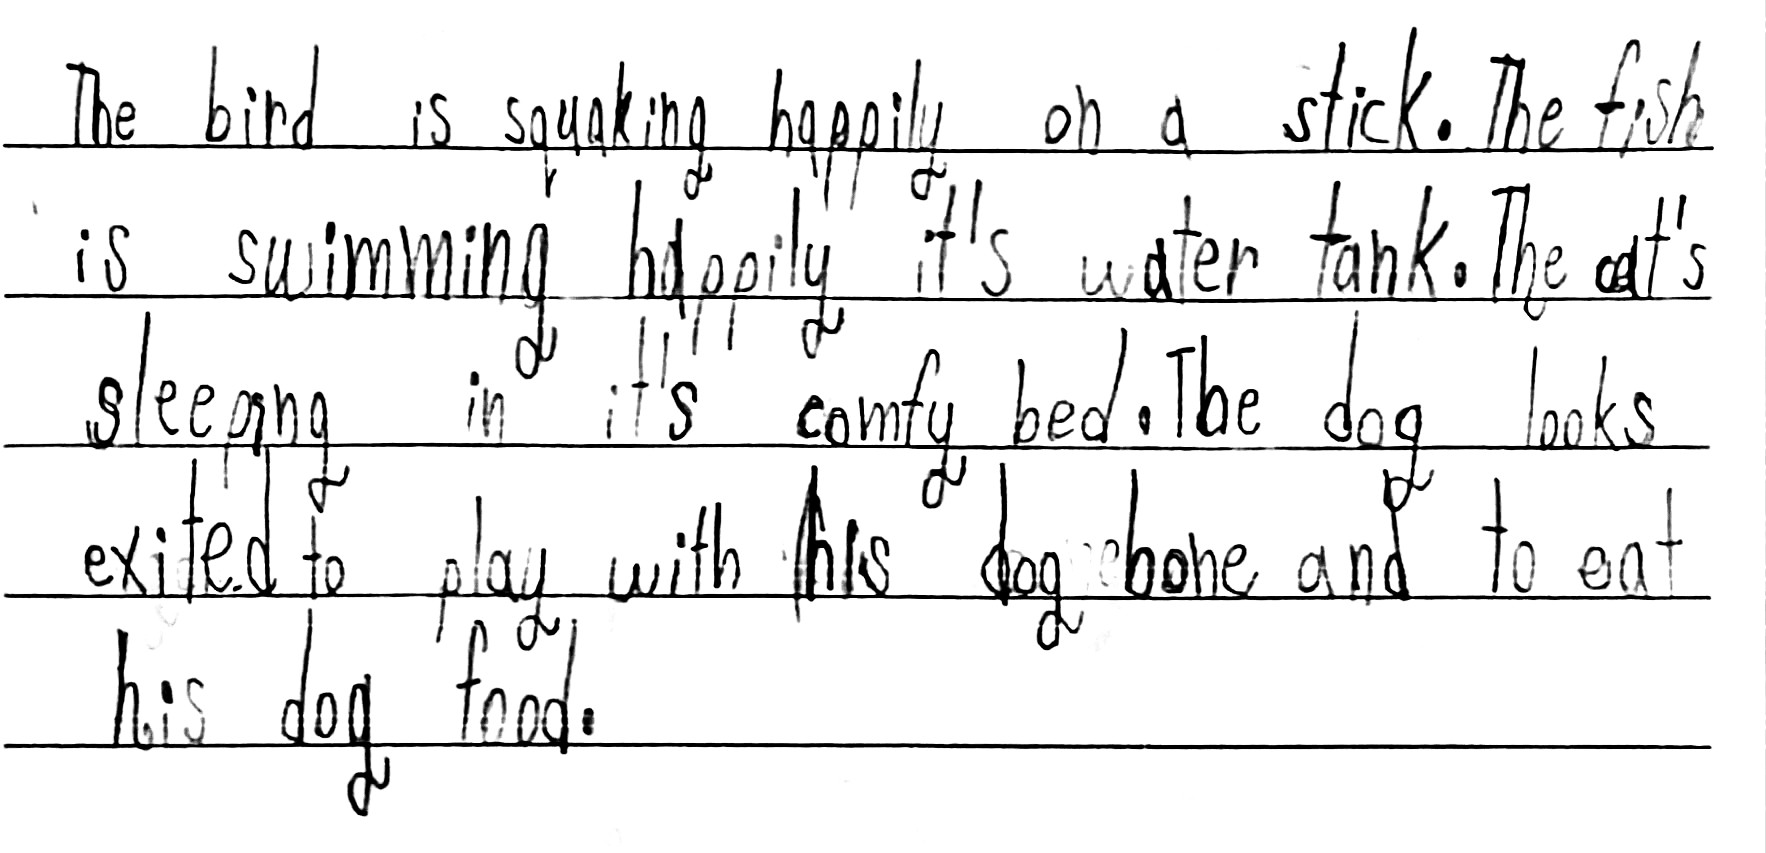 The bird is squaking happily on a stick. The fish
is swimming happily it's water tank. The cat's
sleepng in it's comfy bed. The dog looks
exited to play with his dog bone and to eat
his dog food.